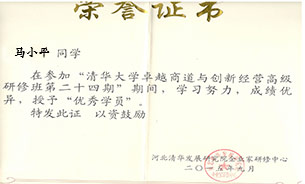 荣誉证书
马小平 同学
在参加“清华大学卓越商道与创新经营高级
研修班第二十四期”期间，学习努力，成绩优
异，授予“优秀学员”。
特发此证 以资鼓励
河北清华发展研究院企业家研修中心
二〇一五年九月